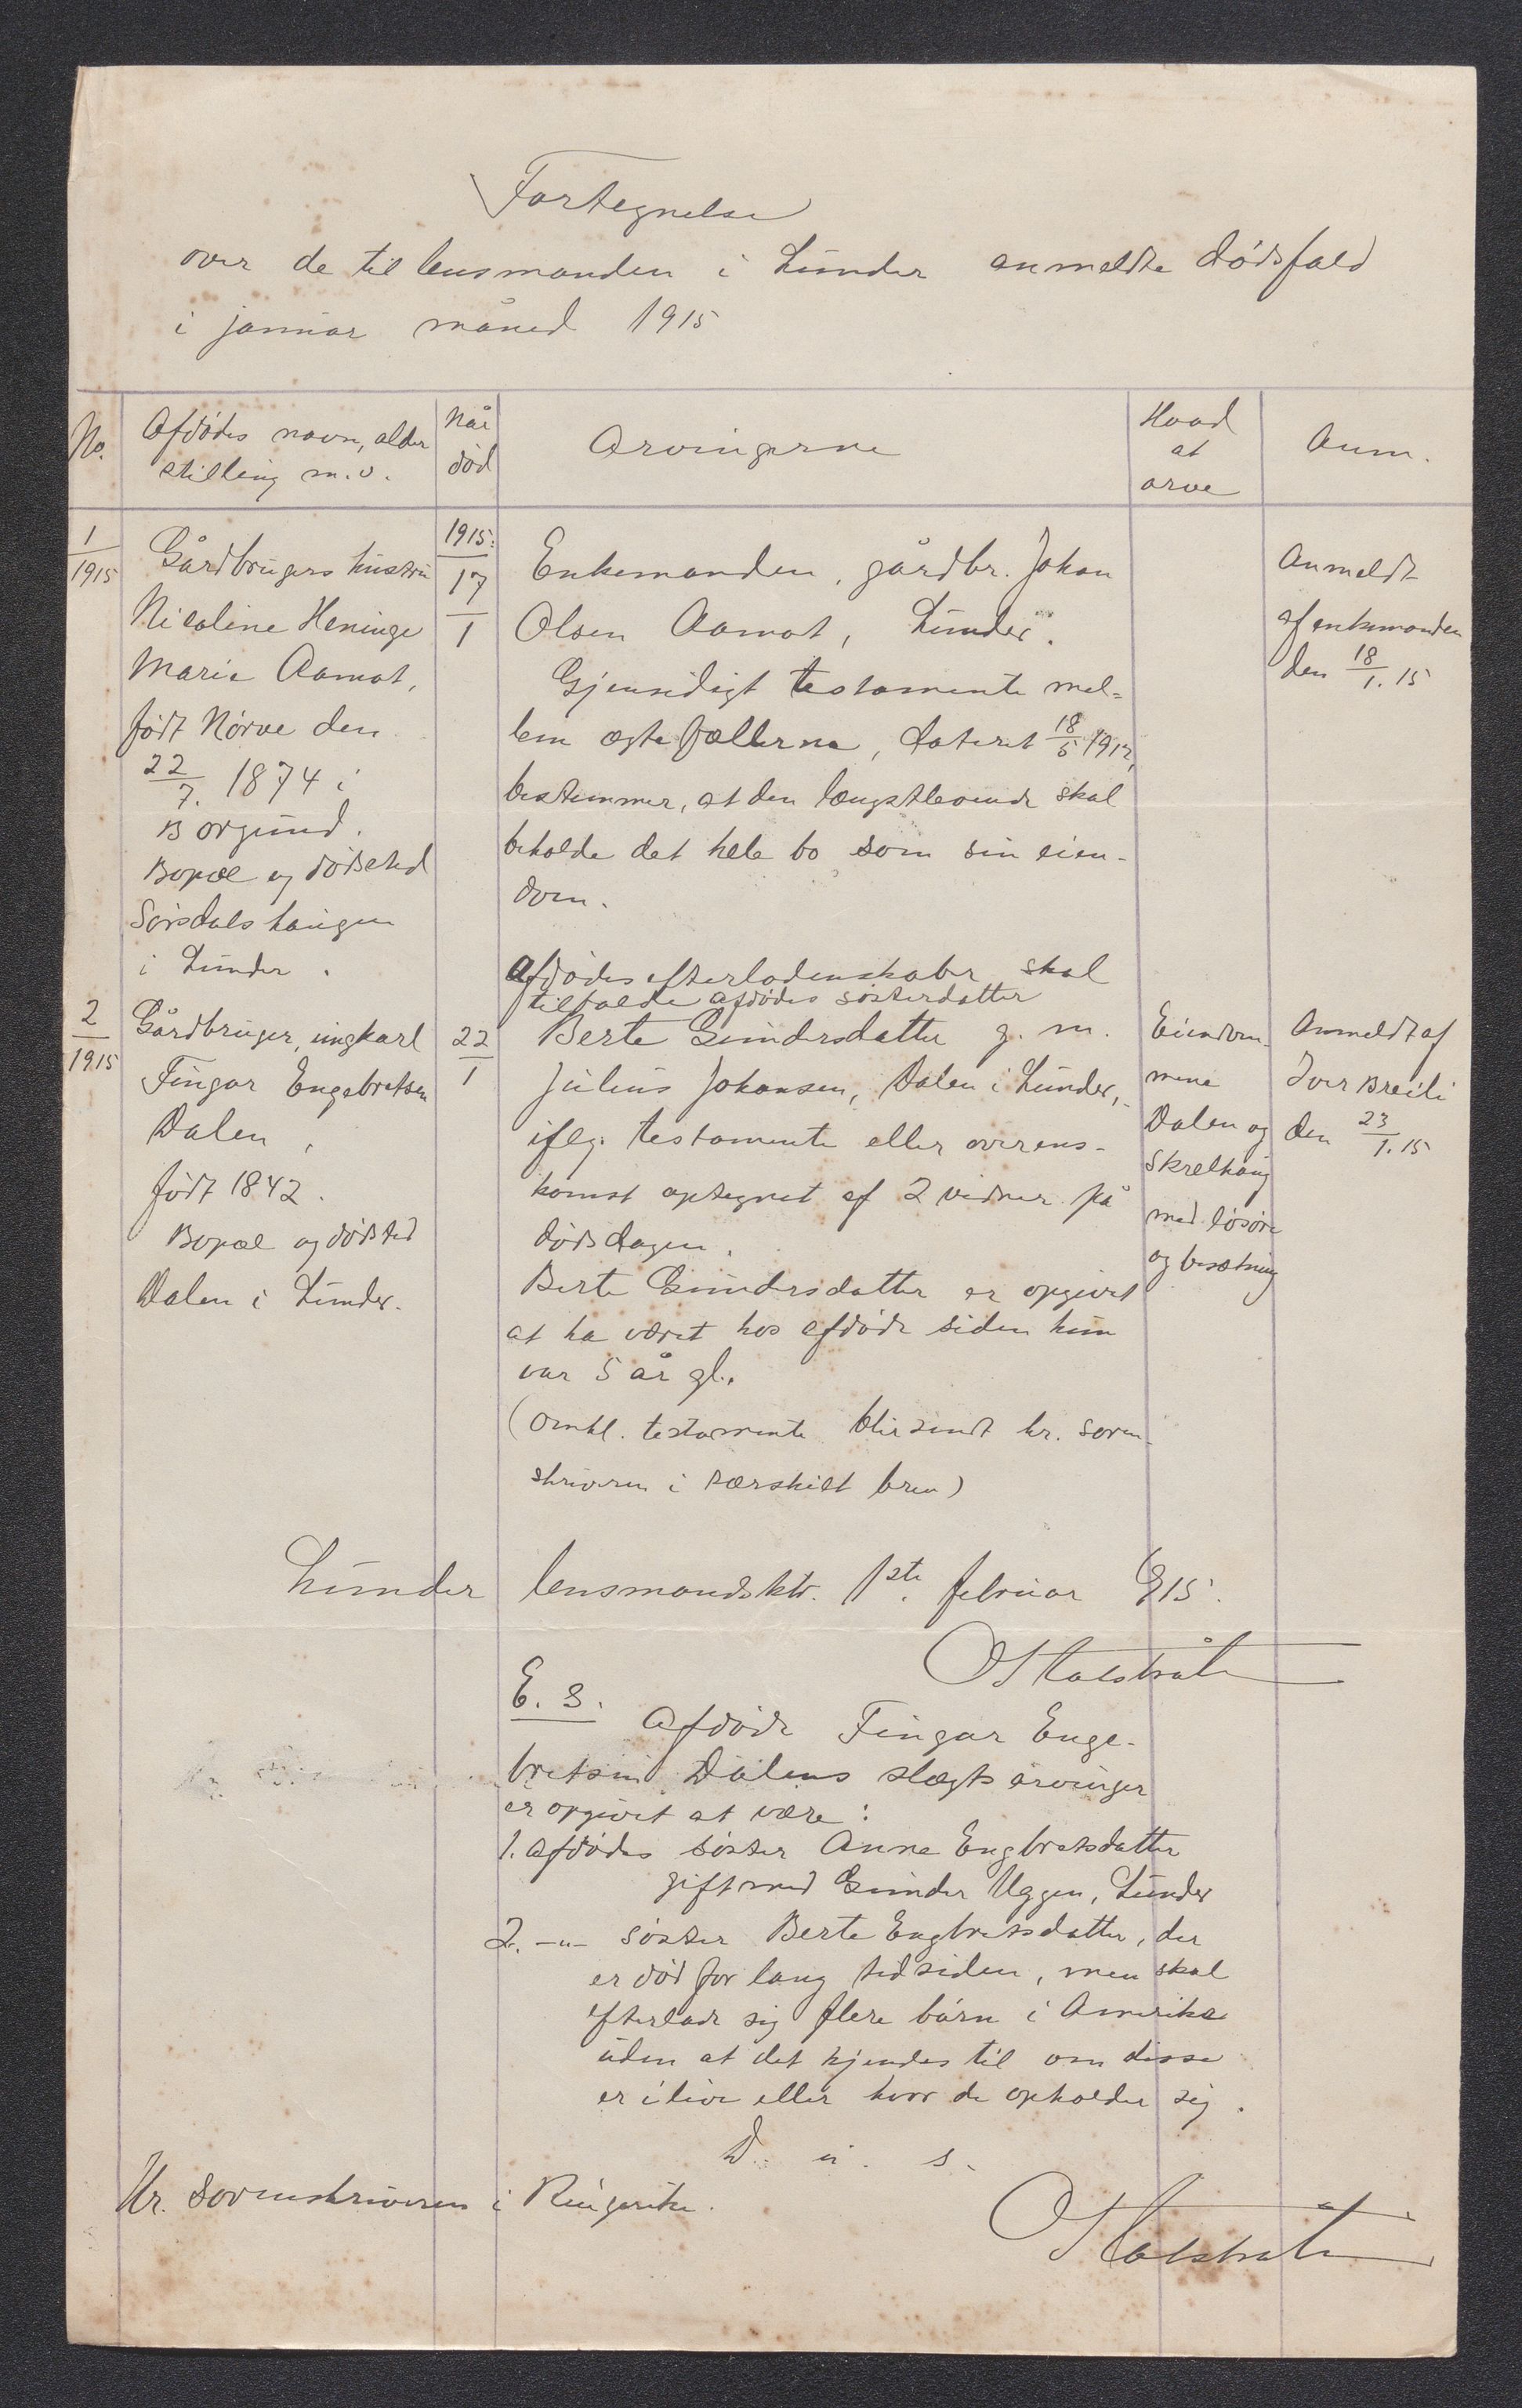 Fortegnelse
over de til lensmanden i Lunder anmeldte dødsfald
i januar måned 1915
No.
Afdødes navn, alder
stilling m.v.
Når
død
Arvingerne
Hvad
at
arve
Anm.
1/1915
Gårdbrugers hustru
Nicoline Heninge
Marie Aamot,
født Nørve den
22/7. 1874 i
Borgund.
Bopæl og dødssted
Sørsdalshaugen
i Lunder.
1915:
17/1
Enkemanden, gårdbr. Johan
Olsen Aamot, Lunder.
Gjensidigt testamente mel-
lem ægtefællerne, dateret 18/5 1912,
bestemmer, at den længstlevende skal
beholde det hele bo som sin eien-
dom.
Anmeldt
af enkemanden
den 18/1. 15
2/1915
Gårdbruger, ungkarl
Fingar Engebretsen
Dalen,
født 1842.
Bopæl og dødssted
Dalen i Lunder.
22/1
Afdødes efterladenskaber skal
tilfalde afdødes søsterdatter
Berte Gundersdatter g. m.
Julius Johansen, Dalen i Lunder,
iflg. testamente eller overens-
komst optegnet af 2 vidner på
dødsdagen.
Berte Gundersdatter er opgivet
at ha været hos afdøde siden hun
var 5 år gl.
(Omhl. testamente blir sendt hr. soren-
skriveren i særskilt brev)
Eiendom-
mene
Dalen og
Skrelhaug
med løsøre
og besætning
Anmeldt af
Iver Breili
den 23/1. 15
Lunder lensmandsktr. 1ste februar 1915.
O Halstråt
E. S. Afdøde Fingar Enge-
bretsen Dalens slægtsarvinger
er opgivet at være:
1. Afdødes søster Anne Engbretsdatter
gift med Gunder Uggen, Lunder
2. -"- søster Berte Engbretsdatter, der
er død for lang tid siden, men skal
efterlade sig flere børn i Amerika
uden at det kjendes til om disse
er ilive eller hvor de opholder sig.
D. u. s.
O Halstråt
Hr. Sorenskriveren i Ringerike.